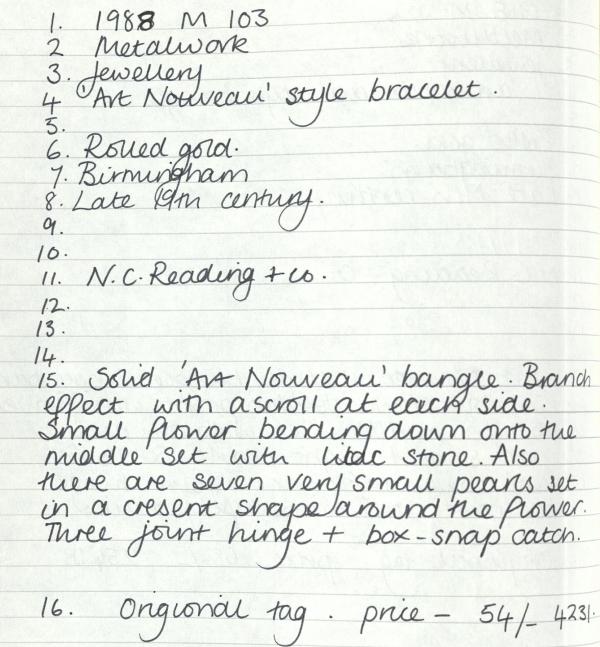 1. 1988 M 103
2 Metalwork
3. Jewellery
4 'Art Nouveau' style bracelet.
5.
6. Rolled gold.
7. Birmingham
8. Late 19th century.
9.
10.
11. N.C. Reading + co.
12.
13.
14.
15. Solid 'Art Nouveau' bangle. Branch
effect with a scroll at each side.
Small flower bending down onto the
middle set with stone. Also
there are seven very small pearls set
in a cresent shape around the flower.
Three joint hinge + box-snap catch.
16. Origional tag. price - 54/- 423/.